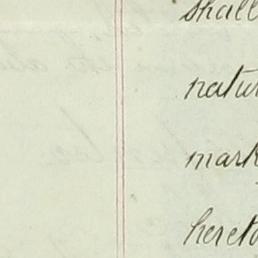 shall
natur
mark
hereto